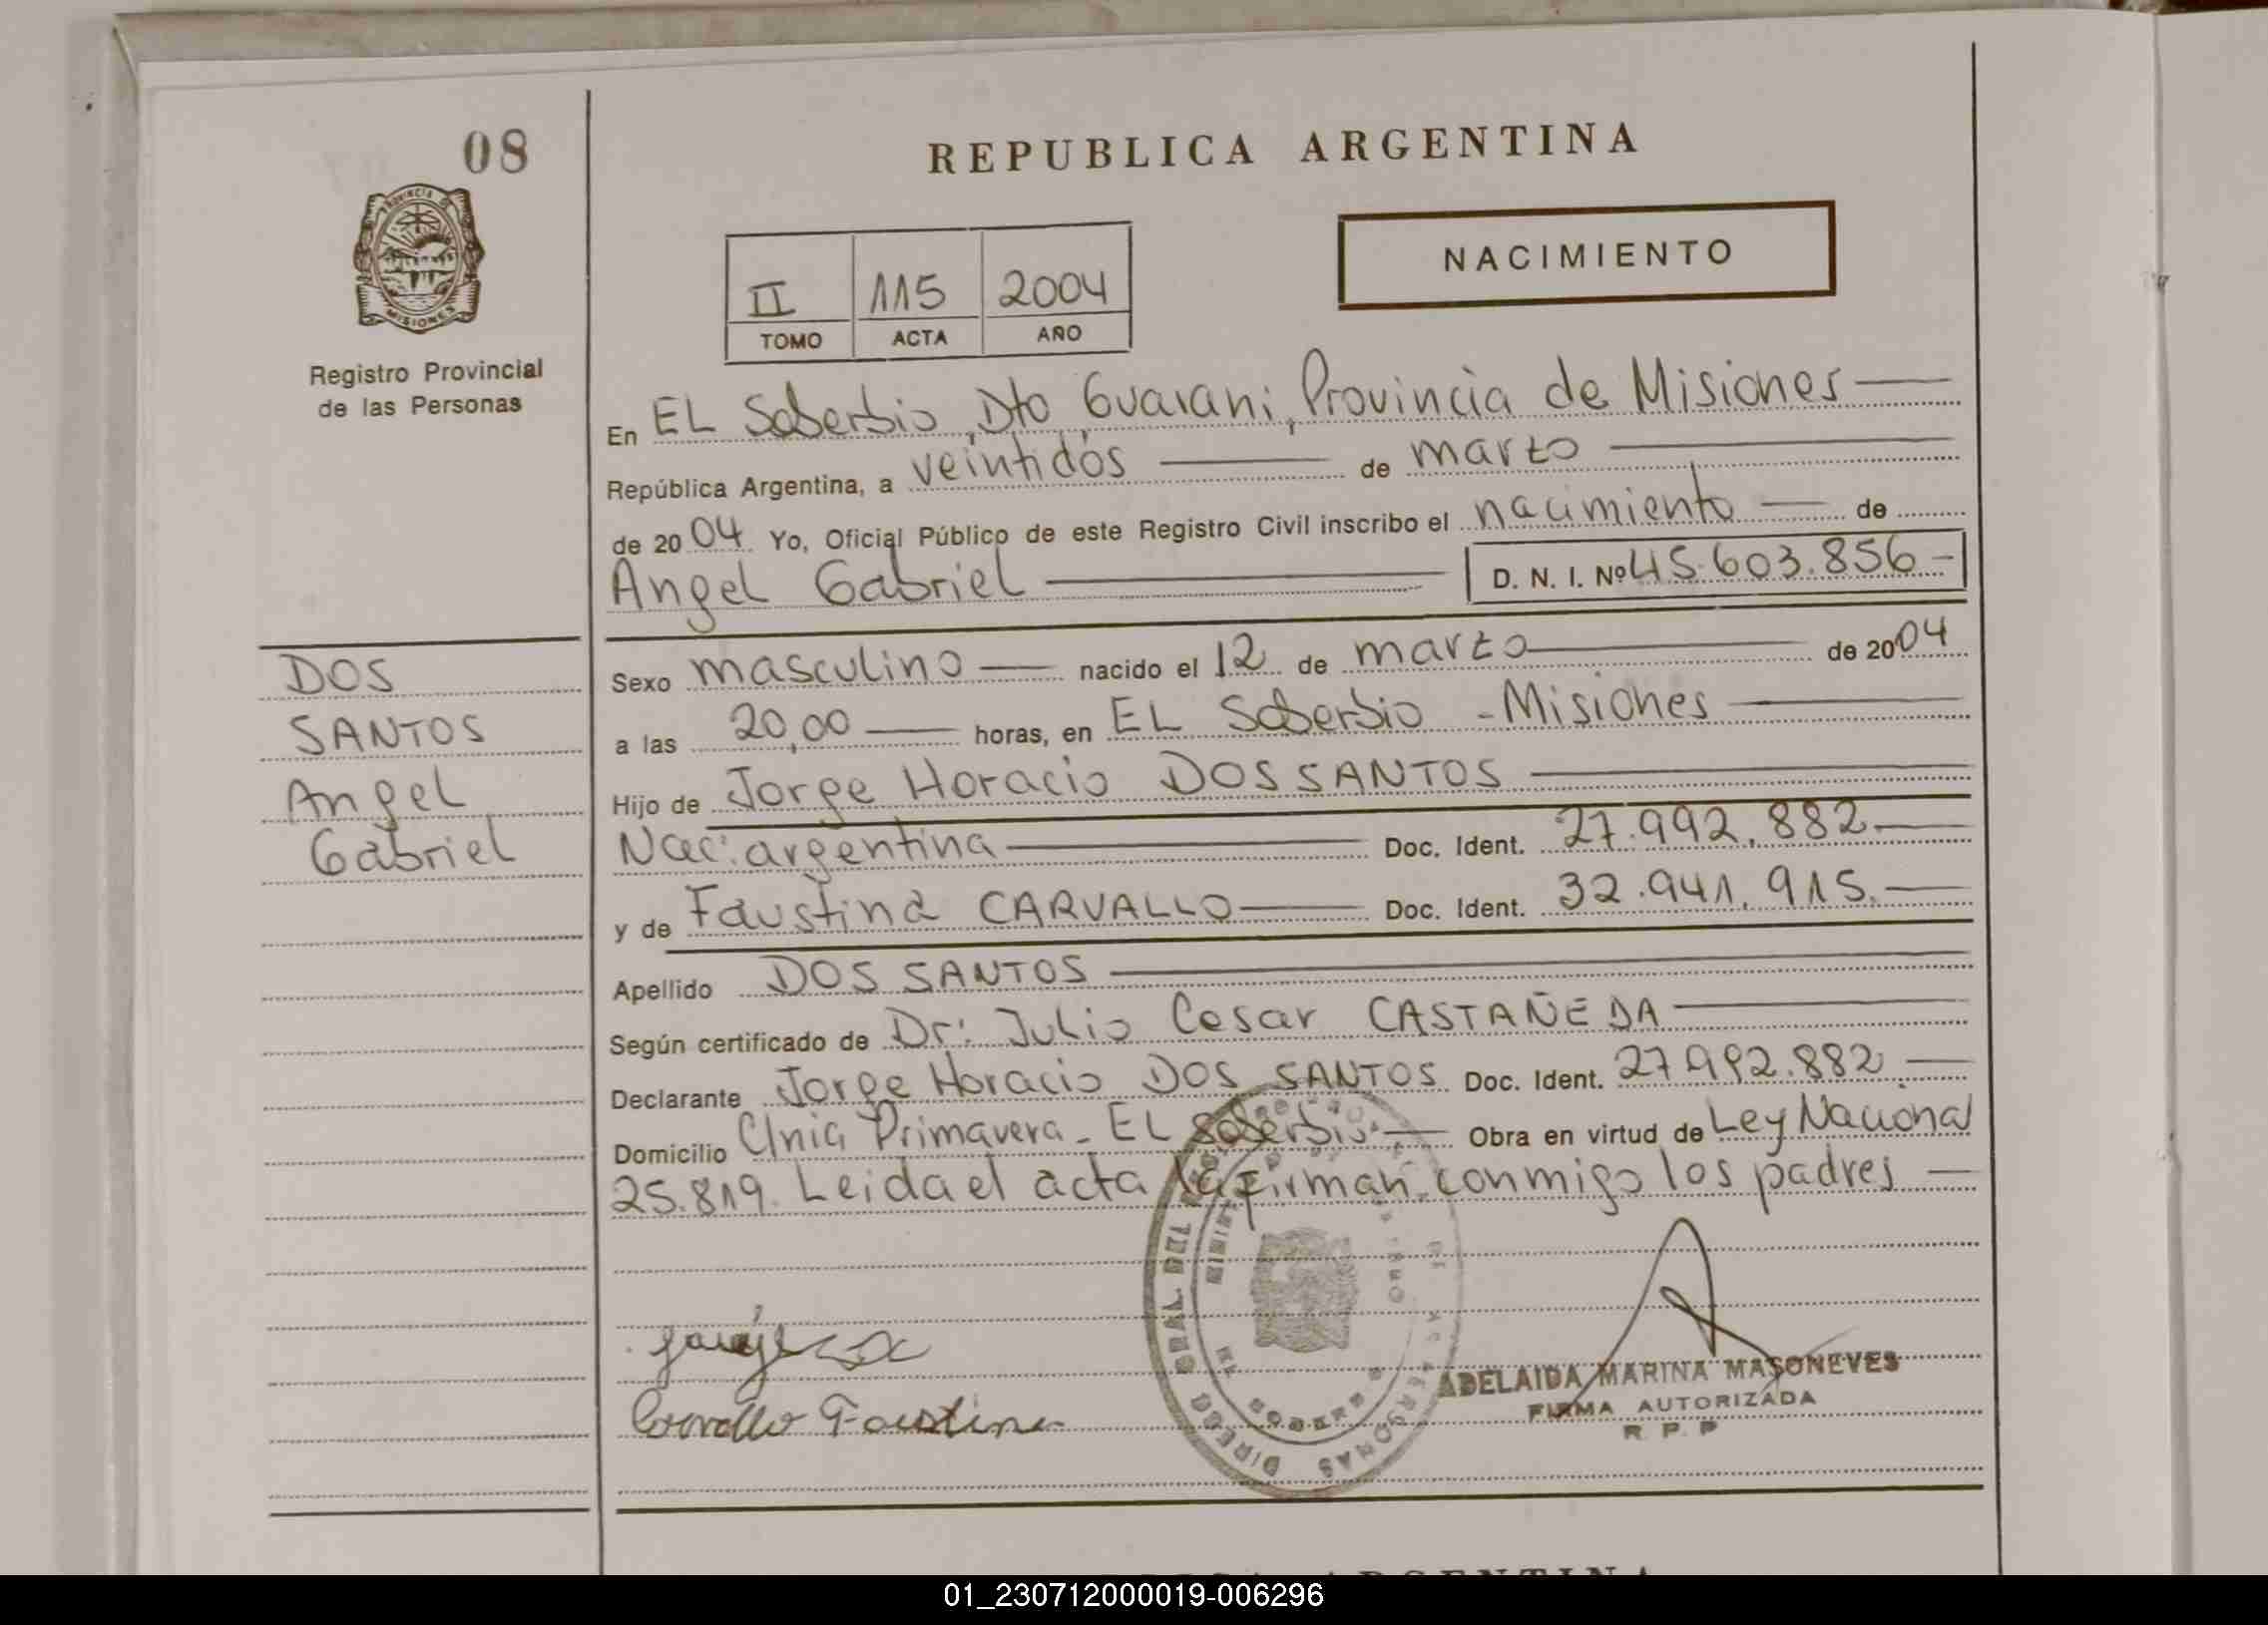 08
REPUBLICA ARGENTINA
PROVINCIA DE
MISIONES
Registro Provincial
de las Personas
NACIMIENTO
II 115 2004
TOMO ACTA AÑO
En EL Soberbio, Dto Guarani, Provincia de Misiones
República Argentina, a veintidós de marzo
de 2004 Yo, Oficial Público de este Registro Civil inscribo el nacimiento de
Angel Gabriel D. N. I. Nº 45.603.856-
DOS
SANTOS
Angel
Gabriel
Sexo masculino nacido el 12 de marzo de 2004
a las 20,00 horas, en EL Soberbio - Misiones
Hijo de Jorge Horacio DOS SANTOS
Nac: argentina Doc. Ident. 27.992.882.
y de Faustina CARVALLO Doc. Ident. 32.941.915.
Apellido DOS SANTOS
Según certificado de Dr: Julio Cesar CASTAÑEDA
Declarante Jorge Horacio DOS SANTOS Doc. Ident. 27.992.882.
Domicilio Clnia Primavera - EL Soberbio.- Obra en virtud de Ley Nacional
25.819. Leida el acta la firman conmigo los padres
Carvallo Faustina
ADELAIDA MARINA MASONEVES
FIRMA AUTORIZADA
R. P. P
01_230712000019-006296